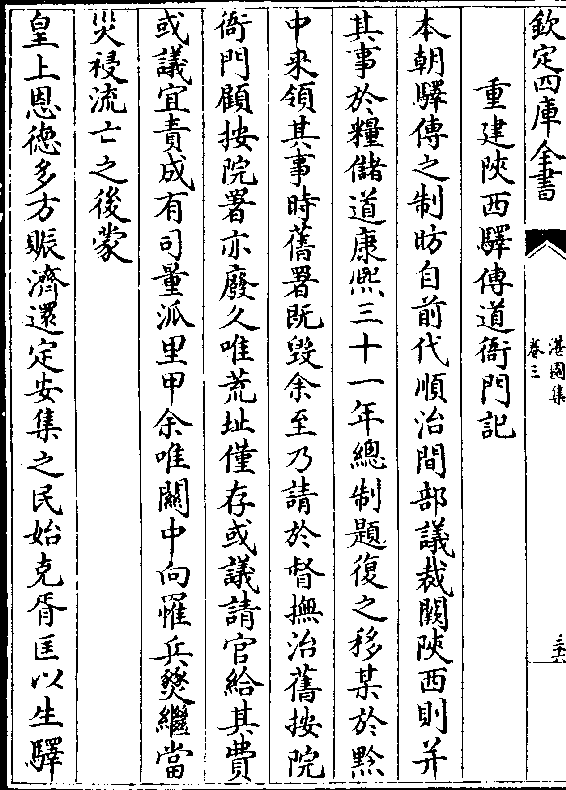 欽定四庫全書
湛園集
卷三
三六
重建陜西驛傳道衙門記
本朝驛傳之制昉自前代順治間部議裁闕陜西則并
其事於糧儲道康熙三十一年總制題復之移某於黔
中来領其事時舊署既毀余至乃請於督撫治舊按院
衙門顧按院署亦廢久唯荒址僅存或議請官給其費
或議宜責成有司量派里甲余唯關中向罹兵燹繼當
災祲流亡之後蒙
皇上恩德多方賑濟還定安集之民始克胥匡以生驛